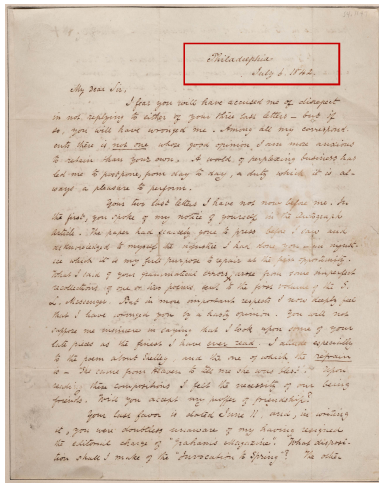 Philadelphia
July 6. 1842.
My Dear Sir,
I fear you will have accused me of disrespect
in not replying to either of your three last letters — but if
so, you will have wronged me. Among all my correspond-
ents there is not one whose good opinion I am more anxious
to retain than your own. A world of perplexing business has
led me to postpone, from day to day, a duty which it is al-
ways a pleasure to perform.
Your two last letters I have now before me. In
the first, you spoke of my notice of yourself in the Autograph
article. The paper had scarcely gone to press before I saw and
acknowledged to myself the injustice I had done you — an injust-
ice which it is my full purpose to repair at the first opportunity.
What I said of your grammatical errors arose from some imperfect
recollections of one or two poems sent to the first volume of the S.
L. Messenger. But in more important respects I now deeply feel
that I have wronged you by a hasty opinion. You will not
suppose me insincere in saying that I look upon some of your
late pieces as the finest I have ever read. I allude especially
to the poem about Shelley, and the one of which the refrain
is — "She came from Heaven to tell me she was blest." Upon
reading these compositions I felt the necessity of our being
friends. Will you accept my proffer of friendship?
Your last favor is dated June 11. and, in writing
it, you were doubtless unaware of my having resigned
the editorial charge of "Graham's Magazine". What disposi-
tion shall I make of the "Invocation to Spring"? The other